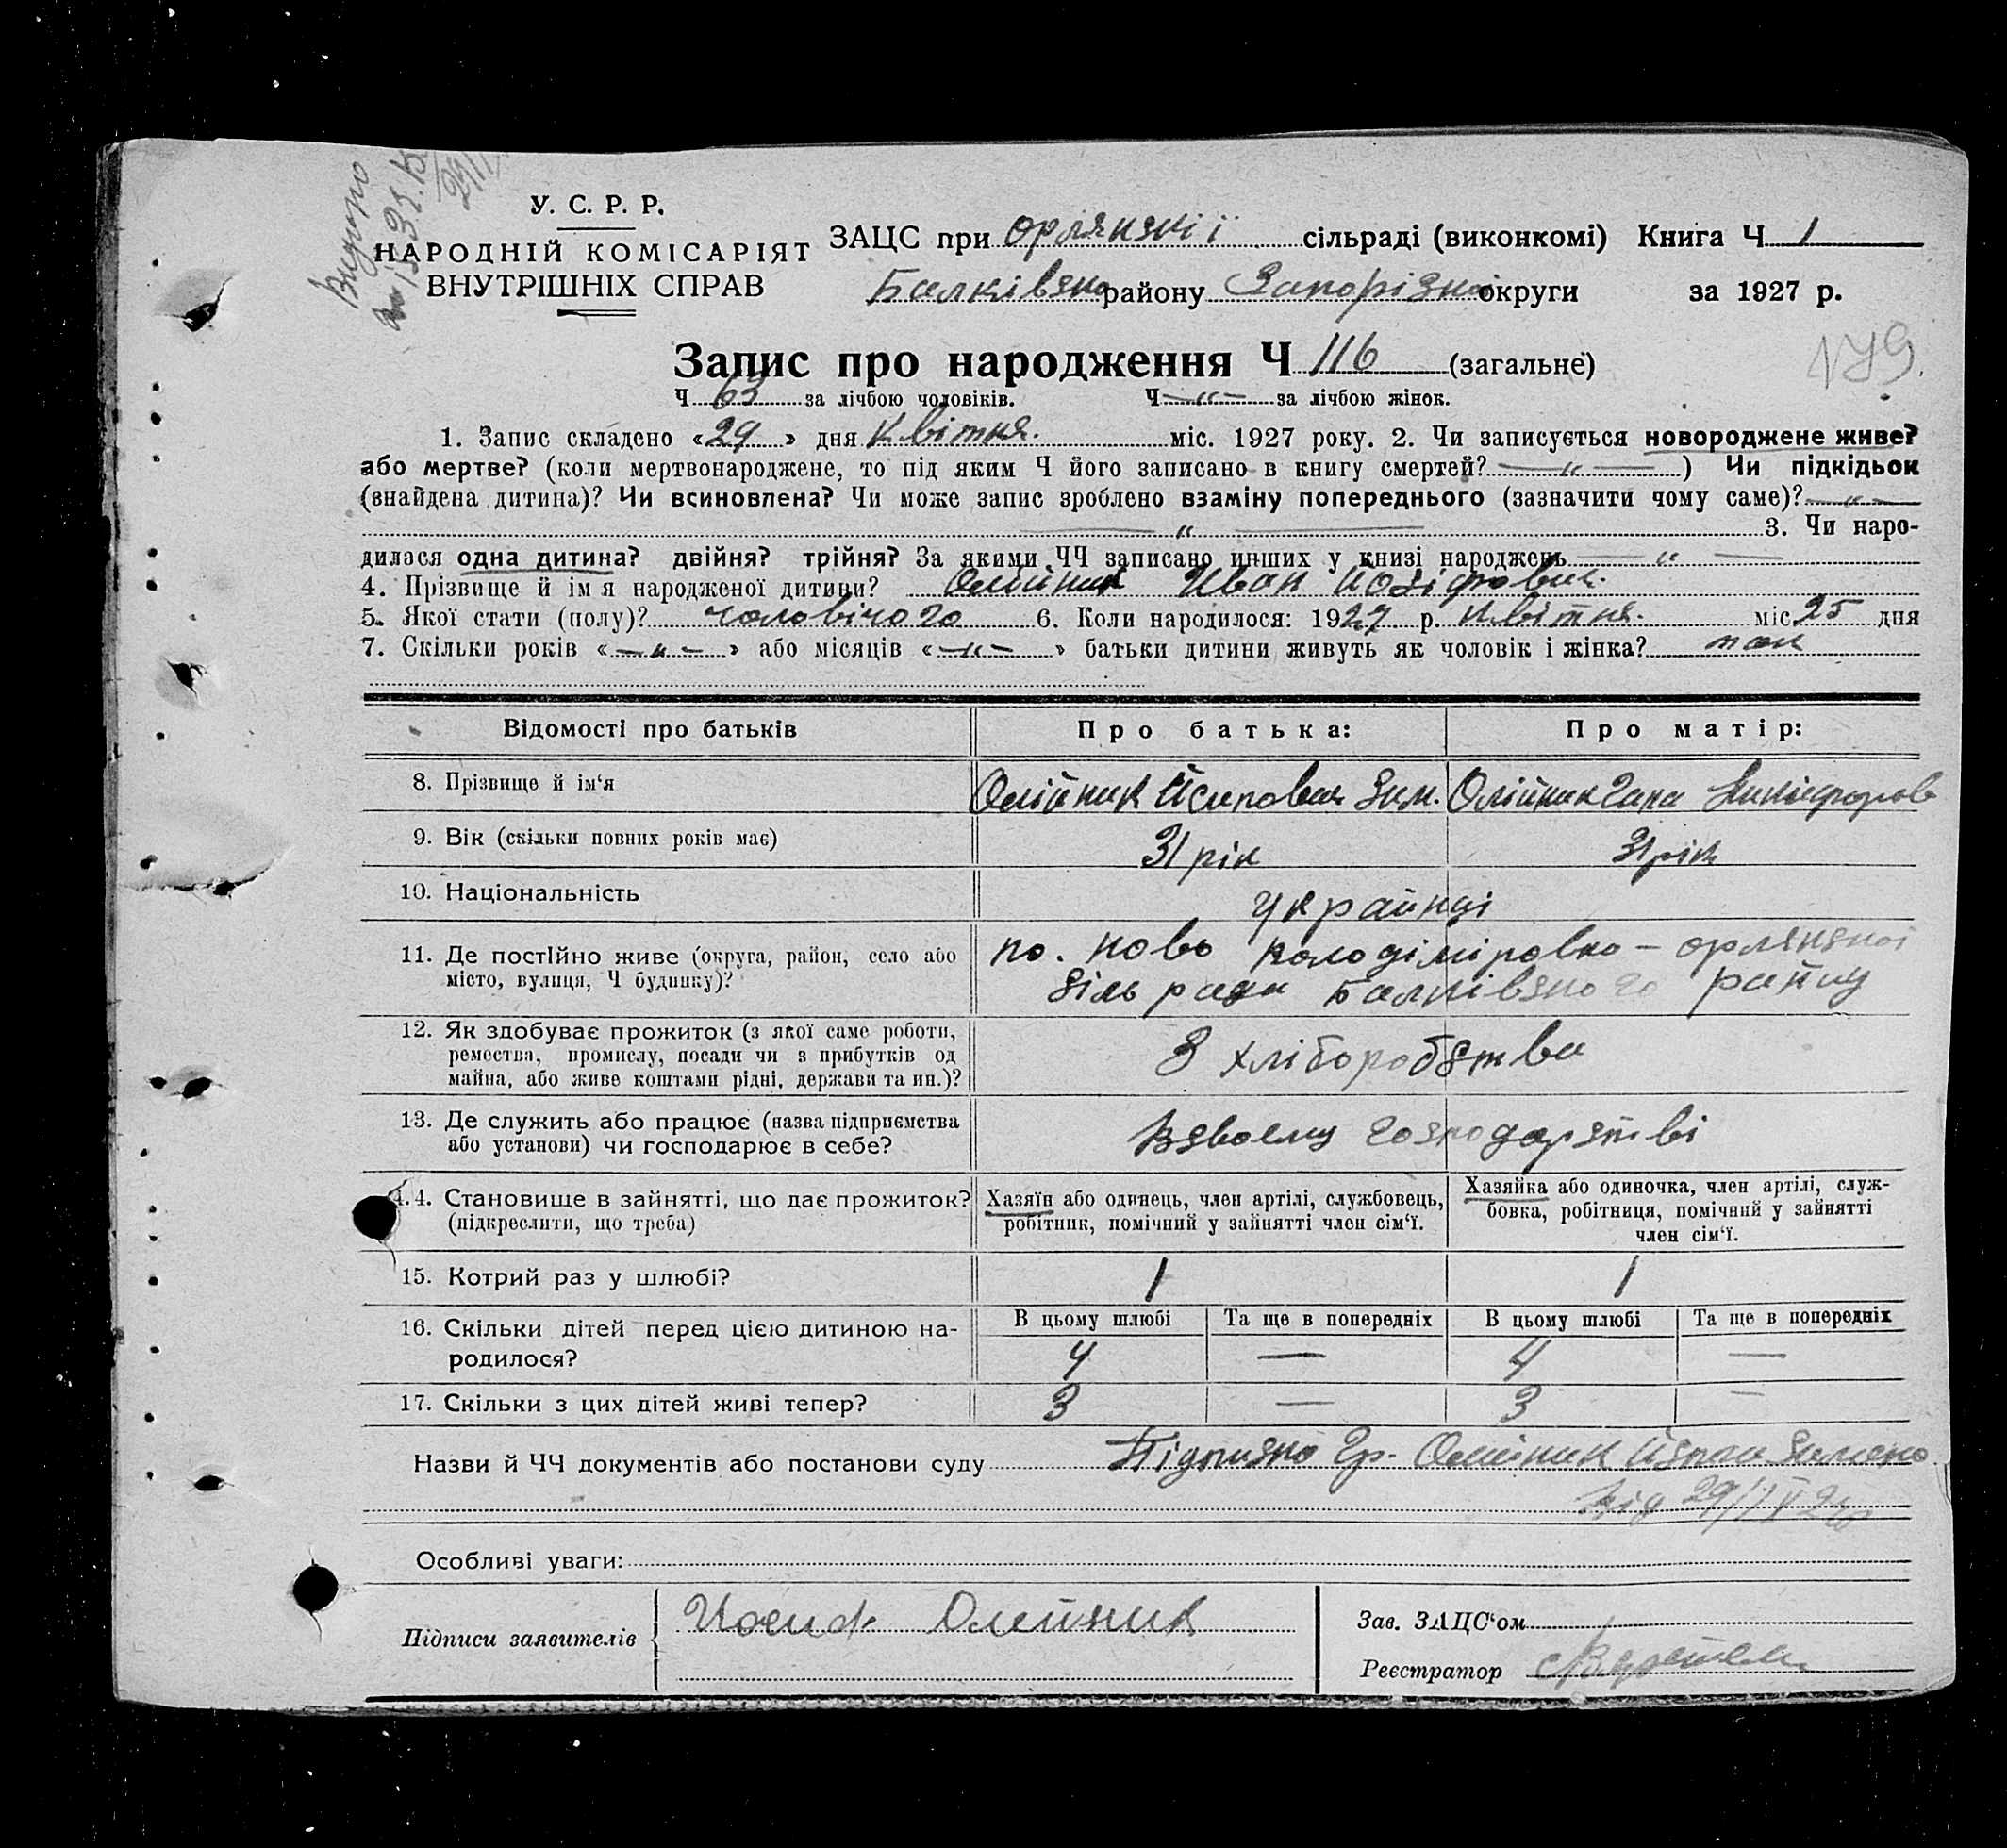 Видано
У. С. Р. Р.
НАРОДНІЙ КОМІСАРІЯТ
ВНУТРІШНІХ СПРАВ
ЗАЦС при Орлянскії сільраді (виконкомі) Книга Ч 1
Балківско району Запорізкої округи за 1927 р.
Запис про народження Ч 116 (загальне)
Ч 63 за лічбою чоловіків. Ч —„— за лічбою жінок.
1. Запис складено «29» дня Квітня. міс. 1927 року. 2. Чи записується новороджене живе?
або мертве? (коли мертвонароджене, то під яким Ч його записано в книгу смертей? —„—) Чи підкідьок
(знайдена дитина)? Чи всиновлена? Чи може запис зроблено взаміну попереднього (зазначити чому саме)? —„—
—„— 3. Чи наро-
дилася одна дитина? двійня? трійня? За якими ЧЧ записано инших у книзі народжень —„—
4. Прізвище й ім я народженої дитини? Олійник Иван Иозіфович.
5. Якої стати (полу)? чоловічого 6. Коли народилося: 1927 р. Квітня. міс 25 дня
7. Скільки років «—„—» або місяців «—„—» батьки дитини живуть як чоловік і жінка? так
Відомості про батьків Про батька: Про матір:
8. Прізвище й ім‘я Олійник Йсипович Сим. Олійник Гапа Никифоров
9. Вік (скільки повних років має) 31 рік 31 рік
10. Національність Українці
11. Де постІйно живе (округа, район, село або
місто, вулиця, Ч будинку)?
по. ново володіміровко – орлянскої
сіль ради Балківского району
12. Як здобуває прожиток (з якої саме роботи,
ремества, промислу, посади чи з прибутків од
майна, або живе коштами рідні, держави та ин.)?
З хліборобства
13. Де служить або працює (назва підприємства
або установи) чи господарює в себе?
Всвоєму господарстві
14. Становище в зайнятті, що дає прожиток?
(підкреслити, що треба)
Хазяїн або одинець, член артілі, службовець,
робітник, помічний у зайнятті член сім‘ї.
Хазяйка або одиночка, член артілі, служ-
бовка, робітниця, помічний у зайнятті
член сім‘ї.
15. Котрий раз у шлюбі? 1 1
В цьому шлюбі Та ще в попередніх В цьому шлюбі Та ще в попередніх
16. Скільки дітей перед цією дитиною на-
родилося? 4 — 4 —
17. Скільки з цих дітей живі тепер? 3 — 3 —
Назви й ЧЧ документів або постанови суду Підписко Гр. Олійник Йсипа
від 29/IV
Особливі уваги:
Підписи заявителів Иосиф Олейник
Зав. ЗАЦС‘ом
Реєстратор